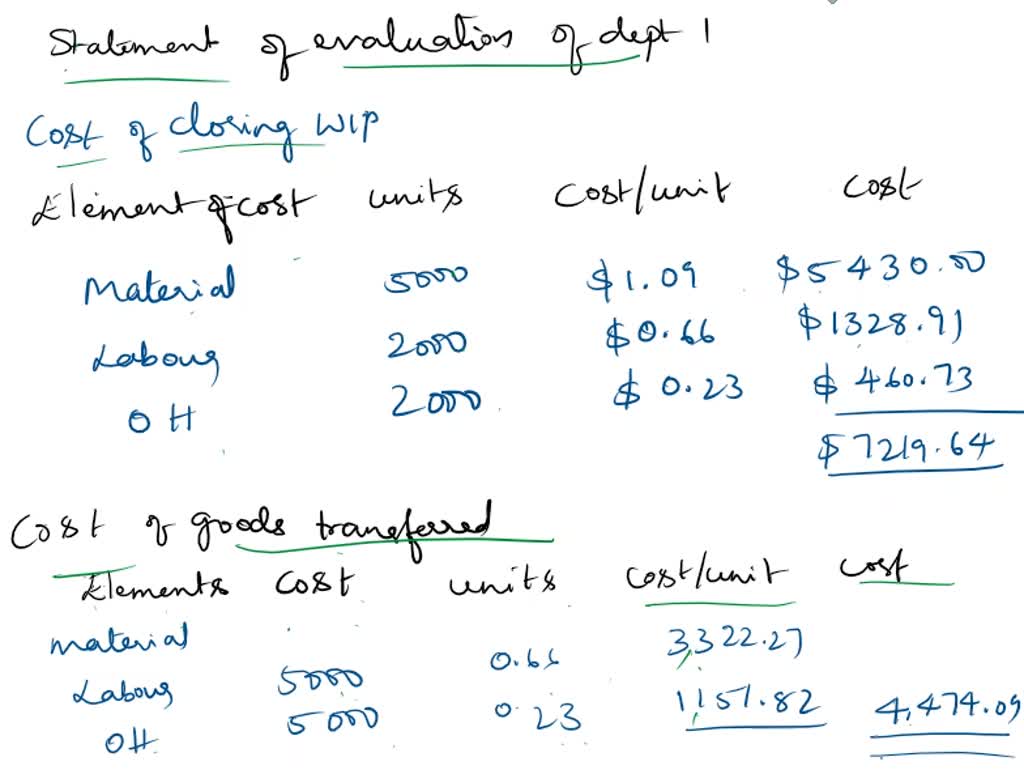 Statement of evaluation of dept 1
Cost of closing WIP
Element of cost units Cost/unit Cost
Material 5000 $1.09 $5430.00
Labour 2000 $0.66 $1328.91
OH 2000 $0.23 $460.73
$7219.64
Cost of goods transferred
Elements Cost units cost/unit cost
material 3,322.27
Labour 5000 0.66 1,151.82 4,474.09
OH 5000 0.23